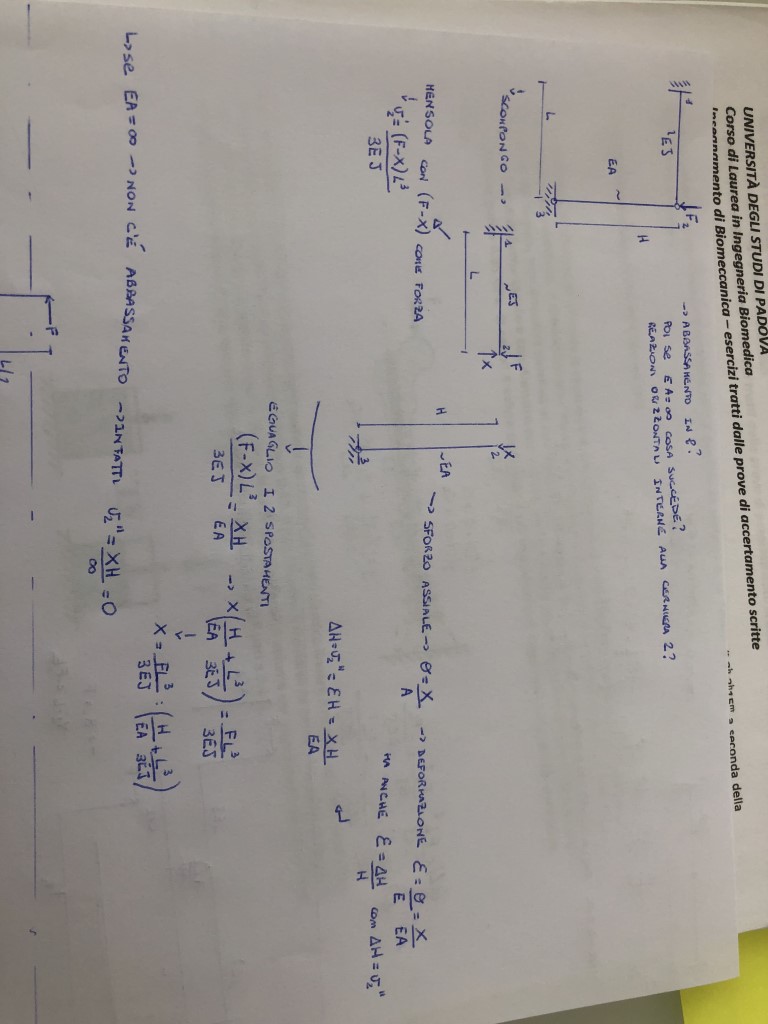 UNIVERSITÀ DEGLI STUDI DI PADOVA
Corso di Laurea in Ingegneria Biomedica
Insegnamento di Biomeccanica – esercizi tratti dalle prove di accertamento scritte
a seconda della
1
EJ
F
2
EA
H
L
3
→ ABBASSAMENTO IN 2?
POI SE EA=∞ COSA SUCCEDE?
REAZIONI ORIZZONTALI INTERNE ALLA CERNIERA 2?
↳ SCOMPONGO →
1
EJ
2
F
X
L
X
2
H
EA
3
→ SFORZO ASSIALE → σ = X/A → DEFORMAZIONE ε = σ/E = X/EA
MA ANCHE ε = ΔH/H con ΔH = v₂''
MENSOLA CON (F-X) COME FORZA
↓
v₂' = (F-X)L³/3EJ
ΔH = v₂'' = εH = XH/EA ↵
EGUAGLIO I 2 SPOSTAMENTI
↓
(F-X)L³/3EJ = XH/EA → X(H/EA + L³/3EJ) = FL³/3EJ
↓
X = FL³/3EJ : (H/EA + L³/3EJ)
↳ SE EA=∞ → NON C'È ABBASSAMENTO → INFATTI v₂'' = XH/∞ = 0
F
L/2